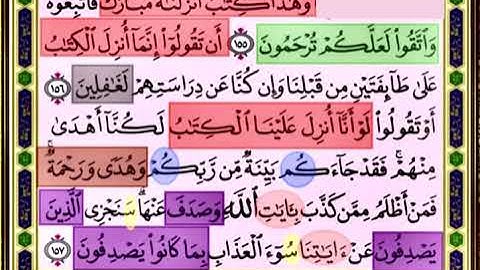 وَهَٰذَا كِتَٰبٌ أَنزَلْنَٰهُ مُبَارَكٌ فَٱتَّبِعُوهُ
وَٱتَّقُوا۟ لَعَلَّكُمْ تُرْحَمُونَ ١٥٥ أَن تَقُولُوٓا۟ إِنَّمَآ أُنزِلَ ٱلْكِتَٰبُ
عَلَىٰ طَآئِفَتَيْنِ مِن قَبْلِنَا وَإِن كُنَّا عَن دِرَاسَتِهِمْ لَغَٰفِلِينَ ١٥٦
أَوْ تَقُولُوا۟ لَوْ أَنَّآ أُنزِلَ عَلَيْنَا ٱلْكِتَٰبُ لَكُنَّآ أَهْدَىٰ
مِنْهُمْ ۚ فَقَدْ جَآءَكُم بَيِّنَةٌ مِّن رَّبِّكُمْ وَهُدًى وَرَحْمَةٌ ۚ
فَمَنْ أَظْلَمُ مِمَّن كَذَّبَ بِـَٔايَٰتِ ٱللَّهِ وَصَدَفَ عَنْهَا ۗ سَنَجْزِى ٱلَّذِينَ
يَصْدِفُونَ عَنْ ءَايَٰتِنَا سُوٓءَ ٱلْعَذَابِ بِمَا كَانُوا۟ يَصْدِفُونَ ١٥٧